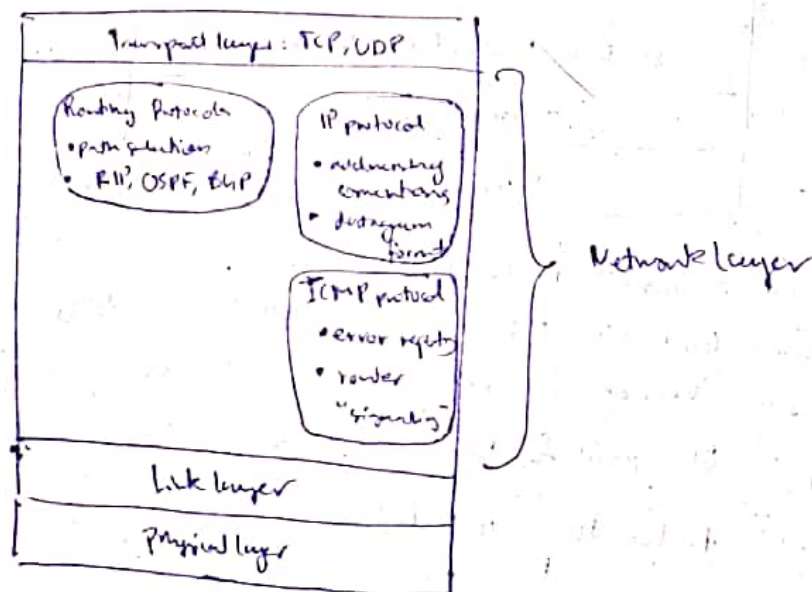 Transport layer: TCP, UDP
Routing Protocols
• path selection
• RIP, OSPF, BGP
IP protocol
• addressing
conventions
• datagram
format
ICMP protocol
• error reporting
• router
"signaling"
Network layer
Link layer
Physical layer